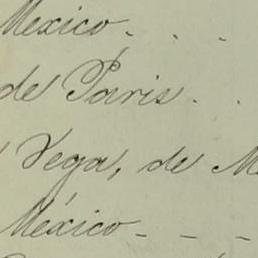 Mexico. . .
de Paris. .
Vega, de M
México - - -